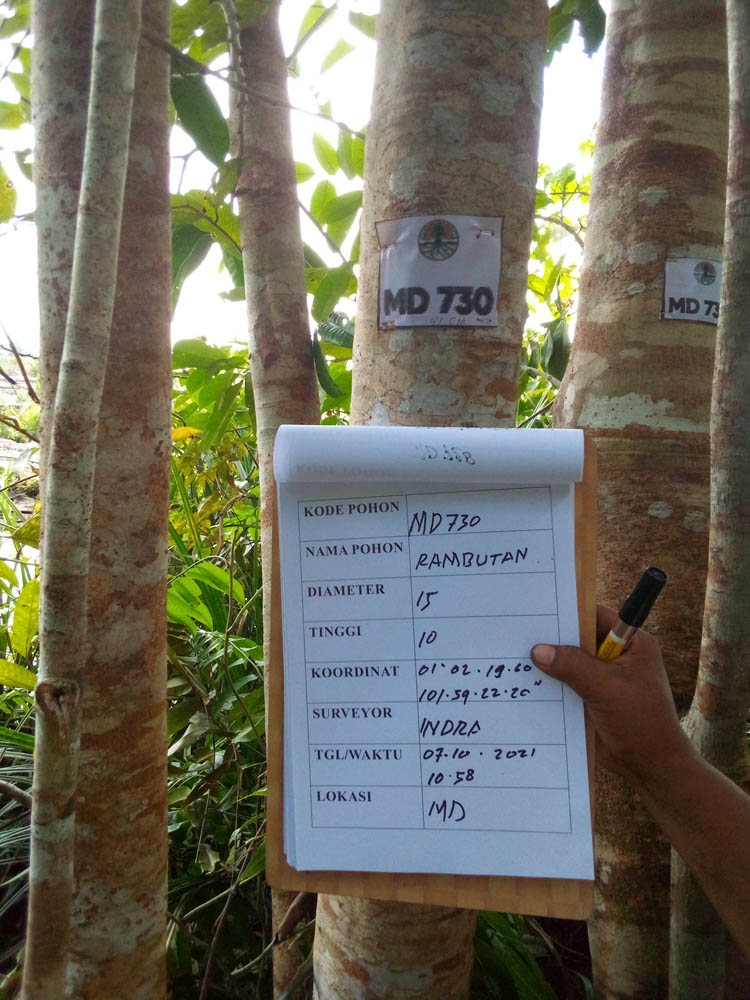 MD 730
MD 73
KODE POHON MD730
NAMA POHON RAMBUTAN
DIAMETER 15
TINGGI 10
KOORDINAT 01°02.19.60
101.59.22.20"
SURVEYOR INDRA
TGL/WAKTU 07.10.2021
10.58
LOKASI MD